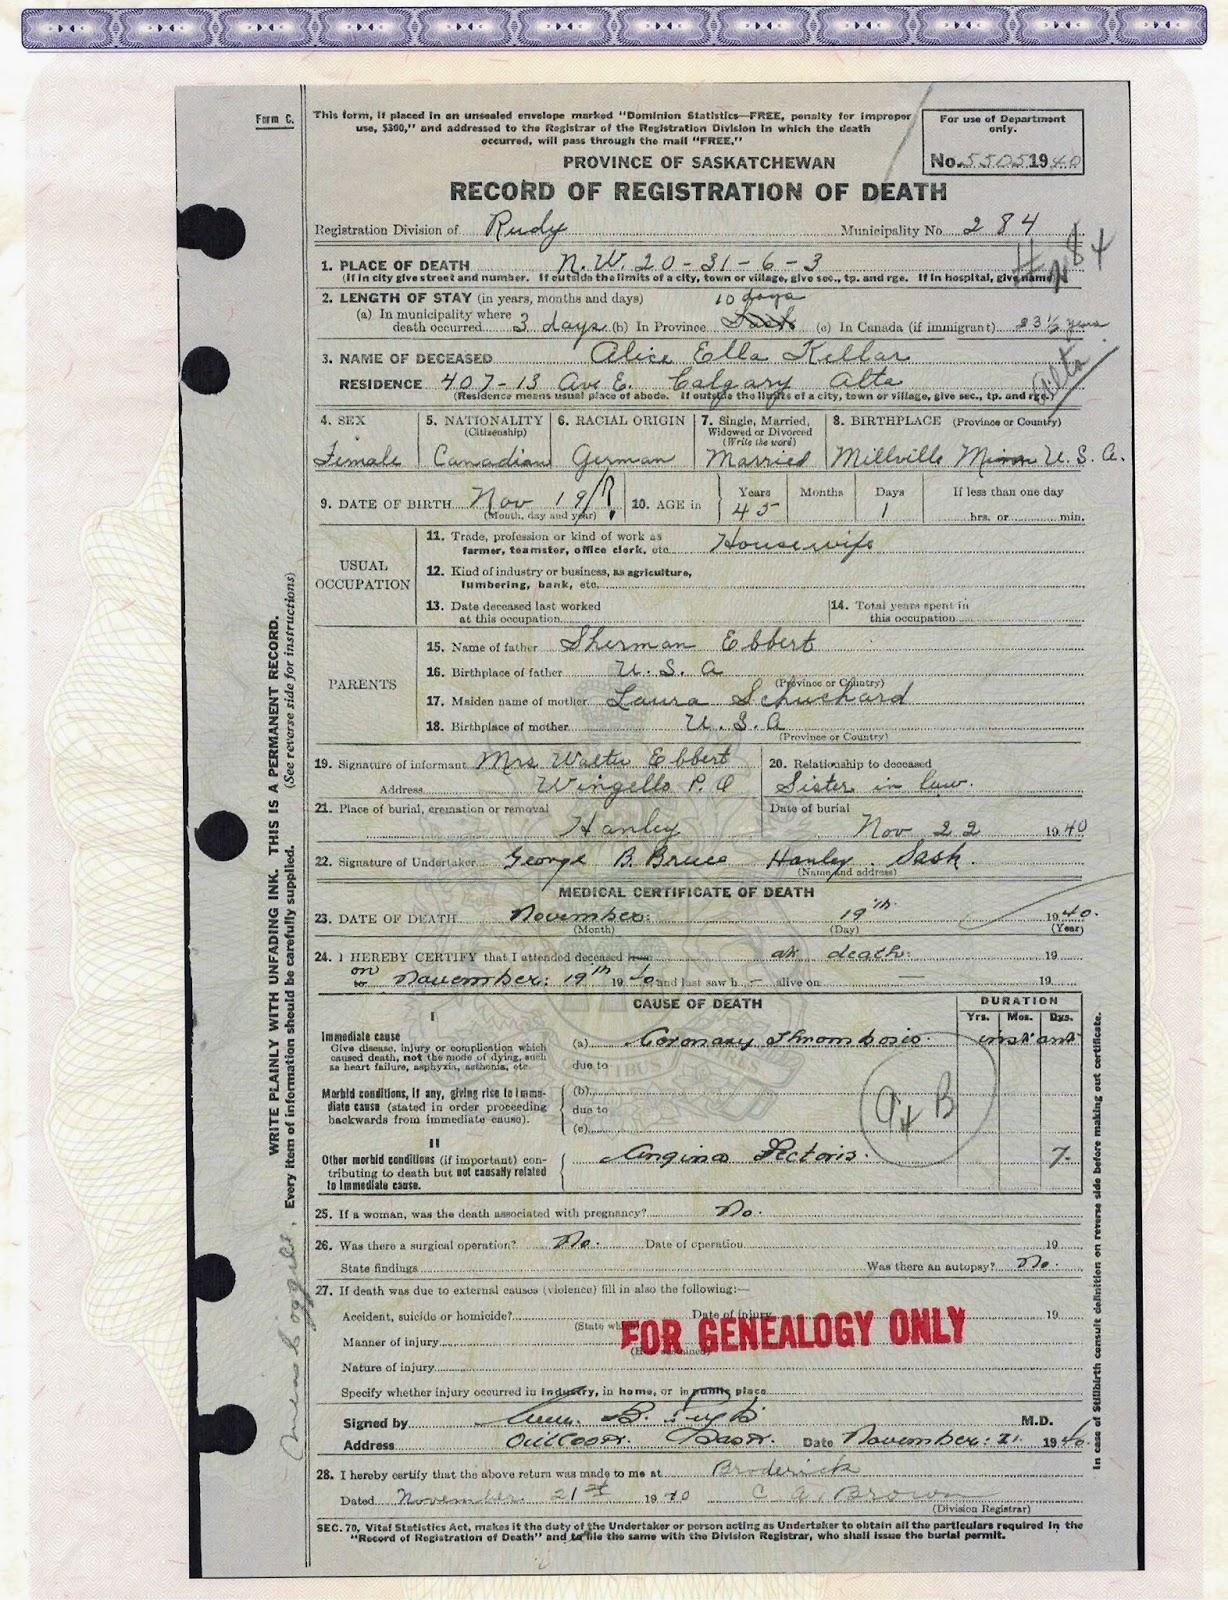 Form C.
This form, if placed in an unsealed envelope marked "Dominion Statistics—FREE, penalty for improper
use, $300," and addressed to the Registrar of the Registration Division in which the death
occurred, will pass through the mail "FREE."
For use of Department
only.
No. 5505 1940
PROVINCE OF SASKATCHEWAN
RECORD OF REGISTRATION OF DEATH
Registration Division of Rudy Municipality No. 284
#284
1. PLACE OF DEATH N.W. 20-31-6-3
(If in city give street and number. If outside the limits of a city, town or village, give sec., tp. and rge. If in hospital, give name)
2. LENGTH OF STAY (in years, months and days) 10 days
(a) In municipality where
death occurred 3 days (b) In Province Sask (c) In Canada (if immigrant) 23 1/2 years
3. NAME OF DECEASED Alice Ella Kellar
RESIDENCE 407-13 Ave E. Calgary Alta
Alta
(Residence means usual place of abode. If outside the limits of a city, town or village, give sec., tp. and rge.)
4. SEX 5. NATIONALITY (Citizenship) 6. RACIAL ORIGIN 7. Single, Married, Widowed or Divorced (Write the word) 8. BIRTHPLACE (Province or Country)
Female Canadian German Married Millville Minn U.S.A.
9. DATE OF BIRTH Nov 19/? (Month, day and year) 10. AGE in Years 45 Months Days 1 If less than one day
hrs. or min.
USUAL
OCCUPATION
11. Trade, profession or kind of work as
farmer, teamster, office clerk, etc. Housewife
12. Kind of industry or business, as agriculture,
lumbering, bank, etc.
13. Date deceased last worked
at this occupation
14. Total years spent in
this occupation
PARENTS
15. Name of father Sherman Ebbert
16. Birthplace of father U.S.A
(Province or Country)
17. Maiden name of mother Laura Schuchard
18. Birthplace of mother U.S.A
(Province or Country)
19. Signature of informant Mrs Walter Ebbert
Address Wingello P.O
20. Relationship to deceased
Sister in law.
21. Place of burial, cremation or removal
Hanley
Date of burial
Nov 22 1940
22. Signature of Undertaker George B. Bruce Hanley. Sask.
(Name and address)
MEDICAL CERTIFICATE OF DEATH
23. DATE OF DEATH November: 19th 1940.
(Month) (Day) (Year)
24. I HEREBY CERTIFY that I attended deceased from at death: 19
on
to November: 19th 1940 and last saw h – alive on — 19
CAUSE OF DEATH
DURATION
Yrs. Mos. Dys.
I
Immediate cause
Give disease, injury or complication which
caused death, not the mode of dying, such
as heart failure, asphyxia, asthenia, etc.
(a) Coronary Thrombosis. instant
due to
Morbid conditions, if any, giving rise to immediate
cause (stated in order proceeding
backwards from immediate cause).
(b)
due to
(c)
II
Other morbid conditions (if important) contributing
to death but not causally related
to immediate cause.
Angina Pectoris. 7.
25. If a woman, was the death associated with pregnancy? No.
26. Was there a surgical operation? No. Date of operation 19
State findings Was there an autopsy? No.
27. If death was due to external causes (violence) fill in also the following:—
Accident, suicide or homicide? (State which) Date of injury 19
FOR GENEALOGY ONLY
Manner of injury (How sustained)
Nature of injury
Specify whether injury occurred in industry, in home, or in public place
Signed by M.D.
Address Outlook. Sask. Date November: 21 1940
28. I hereby certify that the above return was made to me at Broderick
Dated November 21st 1940 C A. Brown
(Division Registrar)
SEC. 70, Vital Statistics Act, makes it the duty of the Undertaker or person acting as Undertaker to obtain all the particulars required in the
"Record of Registration of Death" and to file the same with the Division Registrar, who shall issue the burial permit.
WRITE PLAINLY WITH UNFADING INK. THIS IS A PERMANENT RECORD.
Every item of information should be carefully supplied. (See reverse side for instructions)
In case of Stillbirth consult definition on reverse side before making out certificate.